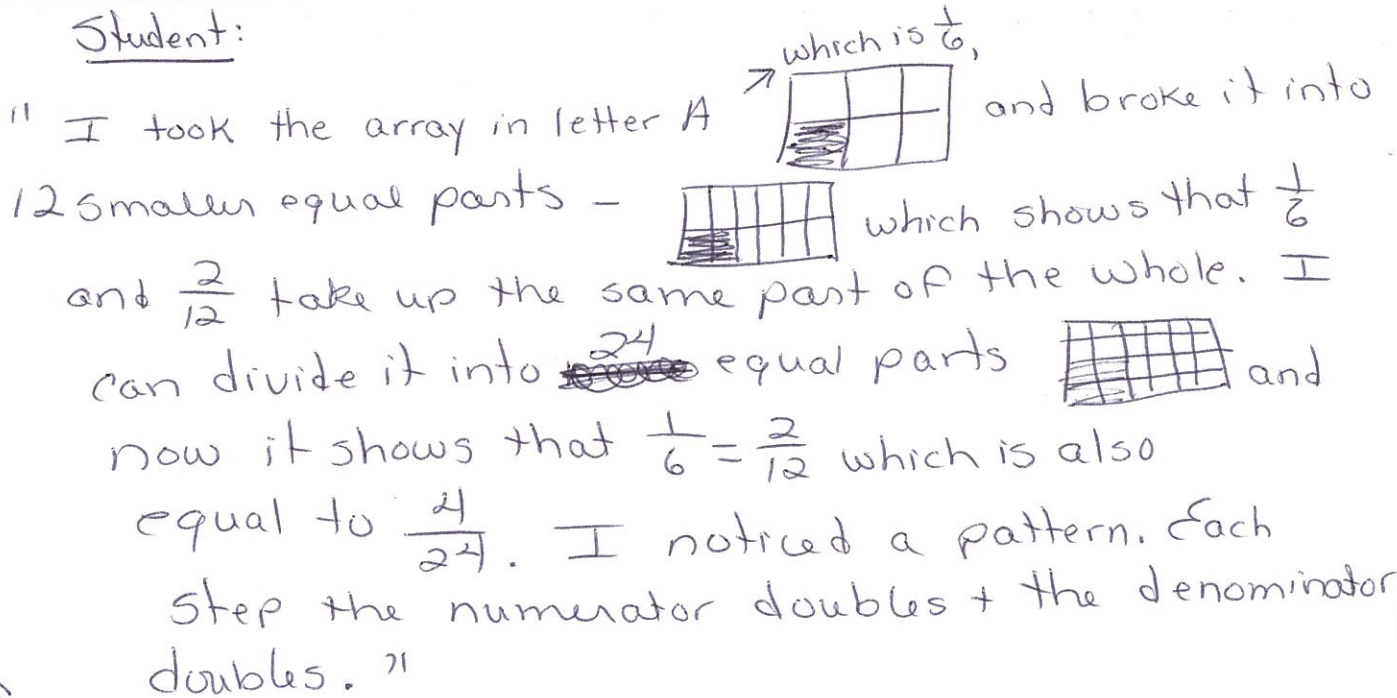 Student:
which is 1/6,
" I took the array in letter A ↗ and broke it into
12 smaller equal parts - which shows that 1/6
and 2/12 take up the same part of the whole. I
can divide it into 24 equal parts and
now it shows that 1/6 = 2/12 which is also
equal to 4/24. I noticed a pattern. Each
step the numerator doubles + the denominator
doubles. "